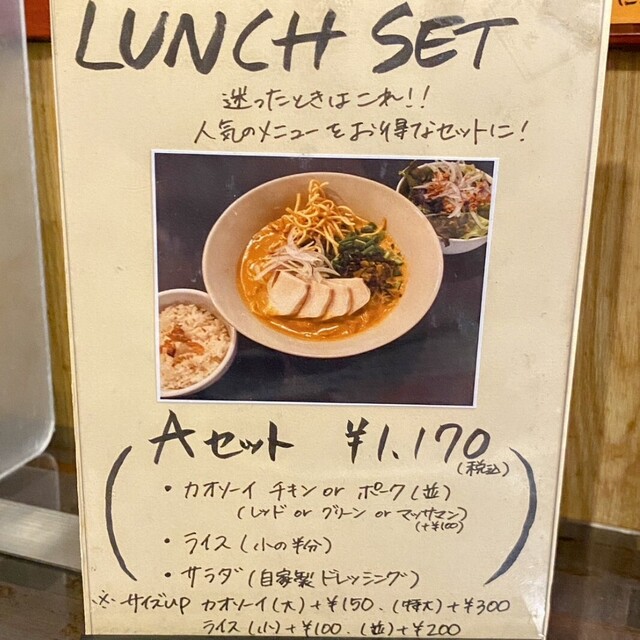 LUNCH SET
迷ったときはこれ!!
人気のメニューをお得なセットに!
Aセット ¥1,170
(税込)
・カオソーイ チキン or ポーク(並)
(レッド or グリーン or マッサマン)
(+¥100)
・ライス(小の半分)
・サラダ(自家製ドレッシング)
※サイズUP カオソーイ(大)+¥150、(特大)+¥300
ライス(小)+¥100、(並)+¥200